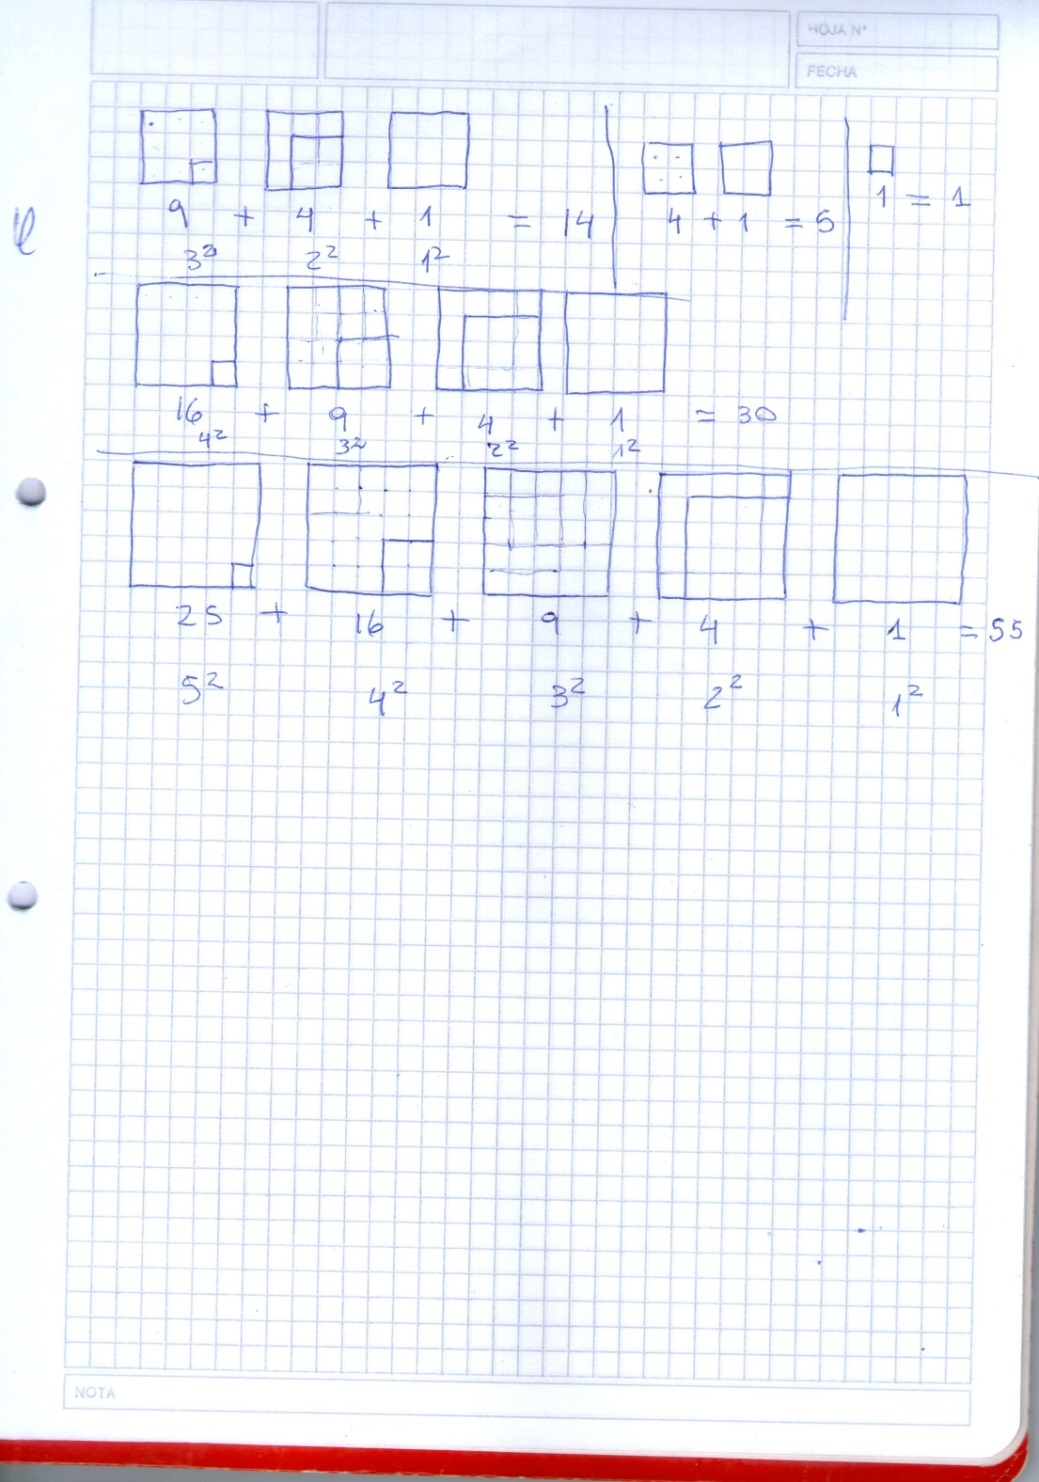 HOJA Nº
FECHA
9 + 4 + 1 = 14
3² 2² 1²
4 + 1 = 5
1 = 1
16 + 9 + 4 + 1 = 30
4² 3² 2² 1²
25 + 16 + 9 + 4 + 1 = 55
5² 4² 3² 2² 1²
NOTA